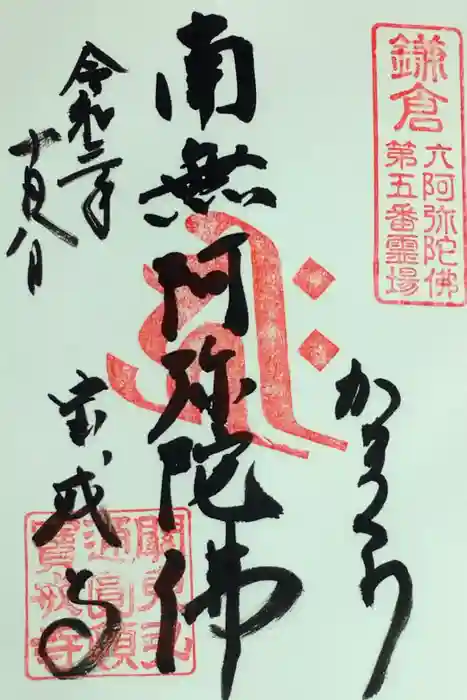 鎌倉
六阿弥陀佛
第五番靈場
かまくら
南無阿弥陀佛
令和二年
十月八日
宝戒寺
關東弘
通圓頓
寶戒寺